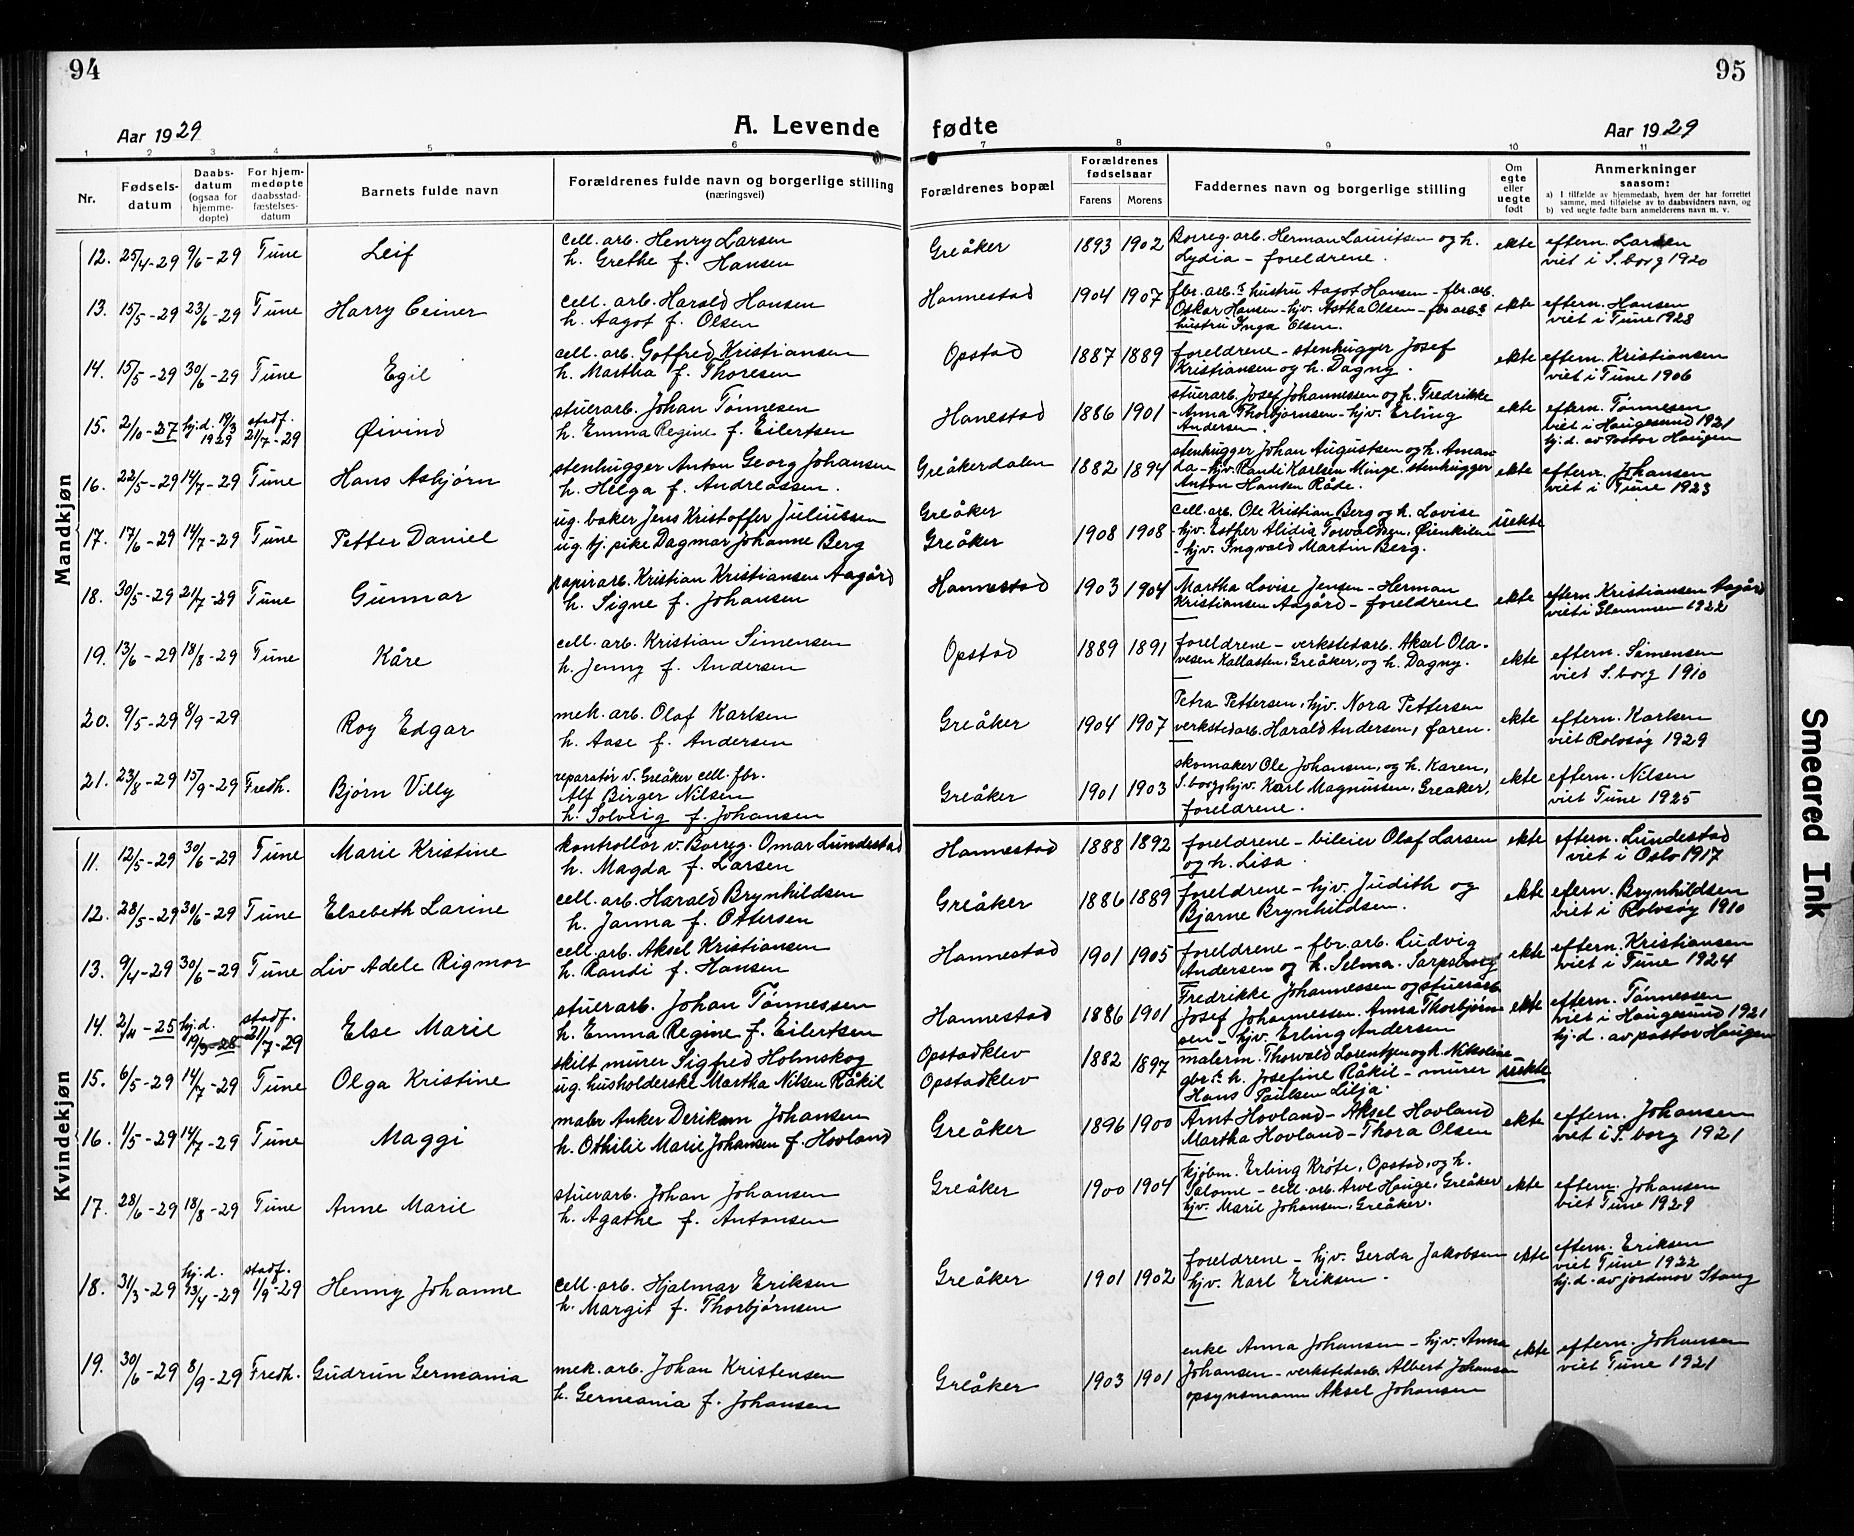 94
95
Aar 1929
A. Levende fødte
Aar 1929
1 2 3 4 5 6 7 8 9 10 11
Nr.
Fødsels-
datum
Daabs-
datum
(ogsaa for
hjemme-
døpte)
For hjem-
medøpte
daabsstad-
fæstelses-
datum
Barnets fulde navn
Forældrenes fulde navn og borgerlige stilling
(næringsvei)
Forældrenes bopæl
Forældrenes
fødselsaar
Farens
Morens
Faddernes navn og borgerlige stilling
Om
egte
eller
uegte
født
Anmerkninger
saasom:
a) I tilfælde av hjemmedaab, hvem der har forrettet
samme, med tilføielse av to daabsvidners navn, og
b) ved uegte fødte barn anmelderens navn m. v.
Mandkjøn
12. 25/4-29 9/6-29 Tune Leif
cell. arb. Henry Larsen
h. Grethe f. Hansen
Greåker 1893 1902
Borreg. arb. Herman Lauritsen og h.
Lydia - foreldrene.
ekte
eftern. Larsen
viet i S.borg 1920
13. 15/5-29 23/6-29 Tune Harry Ceiner
cell. arb. Harald Hansen
h. Aagot f. Olsen
Hannestad 1904 1907
fbr. arb.s hustru Aagot Hansen - fbr. arb.
Oskar Hansen - hjv. Astha Olsen - fbr arb.s
hustru Inga Olsen.
ekte
eftern. Hansen
viet i Tune 1928
14. 15/5-29 30/6-29 Tune Egil
cell. arb. Gotfred Kristiansen
h. Martha f. Thoresen
Opstad 1887 1889
foreldrene - stenhugger Josef
Kristiansen og h. Dagny.
ekte
eftern. Kristiansen
viet i Tune 1906
15. 2/10-27 hj.d. 19/3 1929 stadf. 21/7-29 Øivind
stuerarb. Johan Tønnesen
h. Emma Regine f. Eilertsen
Hanestad 1886 1901
stuerarb. Josef Johannessen og h. Fredrikke
- Anna Thorbjørnsen - hjv. Erling
Andersen.
ekte
eftern. Tønnesen
viet i Haugesund 1921
hj.d. av Pastor Haugen
16. 22/5-29 14/7-29 Tune Hans Asbjørn
stenhugger Anton Georg Johansen
h. Helga f. Andreassen.
Greåkerdalen 1882 1894
stenhugger Johan Augustsen og h. Aman
da - hjv. Randi Karlsen Minge. stenhugger
Anton Hansen Råde.
ekte
eftern. Johansen
viet i Tune 1923
17. 17/6-29 14/7-29 Tune Petter Daniel
ug. baker Jens Kristoffer Juliussen
ug. tj. pike Dagmar Johanne Berg
Greåker
Greåker 1908 1908
cell. arb. Ole Kristian Berg og h. Lovise
- hjv. Esther Alidia Torvaldsen, Øienkilen
- hjv. Ingvald Martin Berg.
uekte
18. 30/5-29 21/7-29 Tune Gunnar
papirarb. Kristian Kristiansen Aagård
h. Signe f. Johansen
Hannestad 1903 1904
Martha Lovise Jensen - Herman
Kristiansen Aagård - foreldrene
ekte
eftern Kristiansen Aagård
viet i Glemmen 1922
19. 13/6-29 18/8-29 Tune Kåre
cell. arb. Kristian Simensen
h. Jenny f. Andersen
Opstad 1889 1891
foreldrene - verkstedarb. Aksel Ola-
vesen Kallasten, Greåker, og h. Dagny.
ekte
eftern. Simensen
viet S.borg 1910
20. 9/5-29 8/9-29 Roy Edgar
mek. arb. Olaf Karlsen
h. Aase f. Andersen
Greåker 1904 1907
Petra Pettersen, hjv. Nora Pettersen
verkstedarb. Harald Andersen, faren.
ekte
eftern. Karlsen
viet Rolvsøy 1929
21. 23/8-29 15/9-29 Fredh. Bjørn Villy
reparatør v. Greåker cell. fbr.
Alf Birger Nilsen
h. Solveig f. Johansen
Greåker 1901 1903
skomaker Ole Johansen, og h. Karen,
S.borg, hjv. Karl Magnussen, Greaker,
foreldrene.
ekte
eftern. Nilsen
viet Tune 1925
Kvindekjøn
11. 12/5-29 30/6-29 Tune Marie Kristine
kontrollør v. Borreg. Omar Lundestad
h. Magda f. Larsen
Hannestad 1888 1892
foreldrene - bileier Olaf Larsen
og h. Lisa.
ekte
eftern. Lundestad
viet i Oslo 1917
12. 28/5-29 30/6-29 Tune Elsebeth Larine
cell. arb. Harald Brynhildsen
h. Janna f. Ottersen
Greåker 1886 1889
foreldrene - hjv. Judith og
Bjarne Brynhildsen.
ekte
efern. Brynhildsen
viet i Rolvsøy 1910
13. 9/4-29 30/6-29 Tune Liv Adele Rigmor
cell. arb. Aksel Kristiansen
h. Randi f. Hansen
Hannestad 1901 1905
foreldrene - fbr. arb. Ludvig
Andersen og h. Selma. Sarpsborg
ekte
eftern. Kristiansen
viet i Tune 1924
14. 2/4-25 hj.d. 19/3-28 stadf. 21/7-29 Else Marie
stuerarb. Johan Tønnessen
h. Emma Regine f. Eilertsen
Hannestad 1886 1901
Fredrikke Johannessen og stuerarb
Josef Johannessen. Anna Thorbjørn
sen - hjv. Erling Andersen
ekte
eftern. Tønnessen
viet i Haugesund 1921
hj.d. av pastor Haugen
15. 6/5-29 14/7-29 Tune Olga Kristine
skilt murer Sigfred Holmskog
ug. husholderske Martha Nilsen Råkil
Opstadklev
Opstadklev 1882 1897
malerm. Thorvald Lorentzen og h. Nikoline
gbr.s h. Josefine Råkil - murer
Hans Paulsen Lilja.
uekte
16. 1/5-29 14/7-29 Tune Maggi
maler Anker Derikum Johansen
h. Othilie Marie Johansen f. Hovland
Greåker 1896 1900
Arnt Hovland - Aksel Hovland
Martha Hovland - Thora Olsen
ekte
eftern. Johansen
viet i S.borg 1921
17. 28/6-29 18/8-29 Tune Anne Marie
stuerarb. Johan Johansen
h. Agathe f. Antonsen
Greåker 1900 1904
kjøbm. Erling Krøte, Opstad, og h.
Salome - cell. arb. Arve Hauge, Greåker
hjv. Marie Johansen, Greåker.
ekte
eftern. Johansen
viet Tune 1929
18. 31/3-29 hj.d. 23/4-29 stadf. 1/9-29 Henny Johanne
cell. arb. Hjalmar Eriksen
h. Margit f. Thorbjørnsen
Greåker 1901 1902
foreldrene - hjv. Gerda Jakobsen
hjv. Karl Eriksen.
ekte
eftern. Eriksen
viet Tune 1922
hj.d. av jordmor Stang
19. 30/6-29 8/9-29 Fredh. Gudrun Germania
mek. arb. Johan Kristensen
h. Germania f. Johansen
Greåker 1903 1901
enke Anna Johansen - hjv. Anna
Johansen - verkstedarb. Albert Johansen
opsynsmann Aksel Johansen
ekte
eftern. Johansen
viet Tune 1921
Smeared Ink